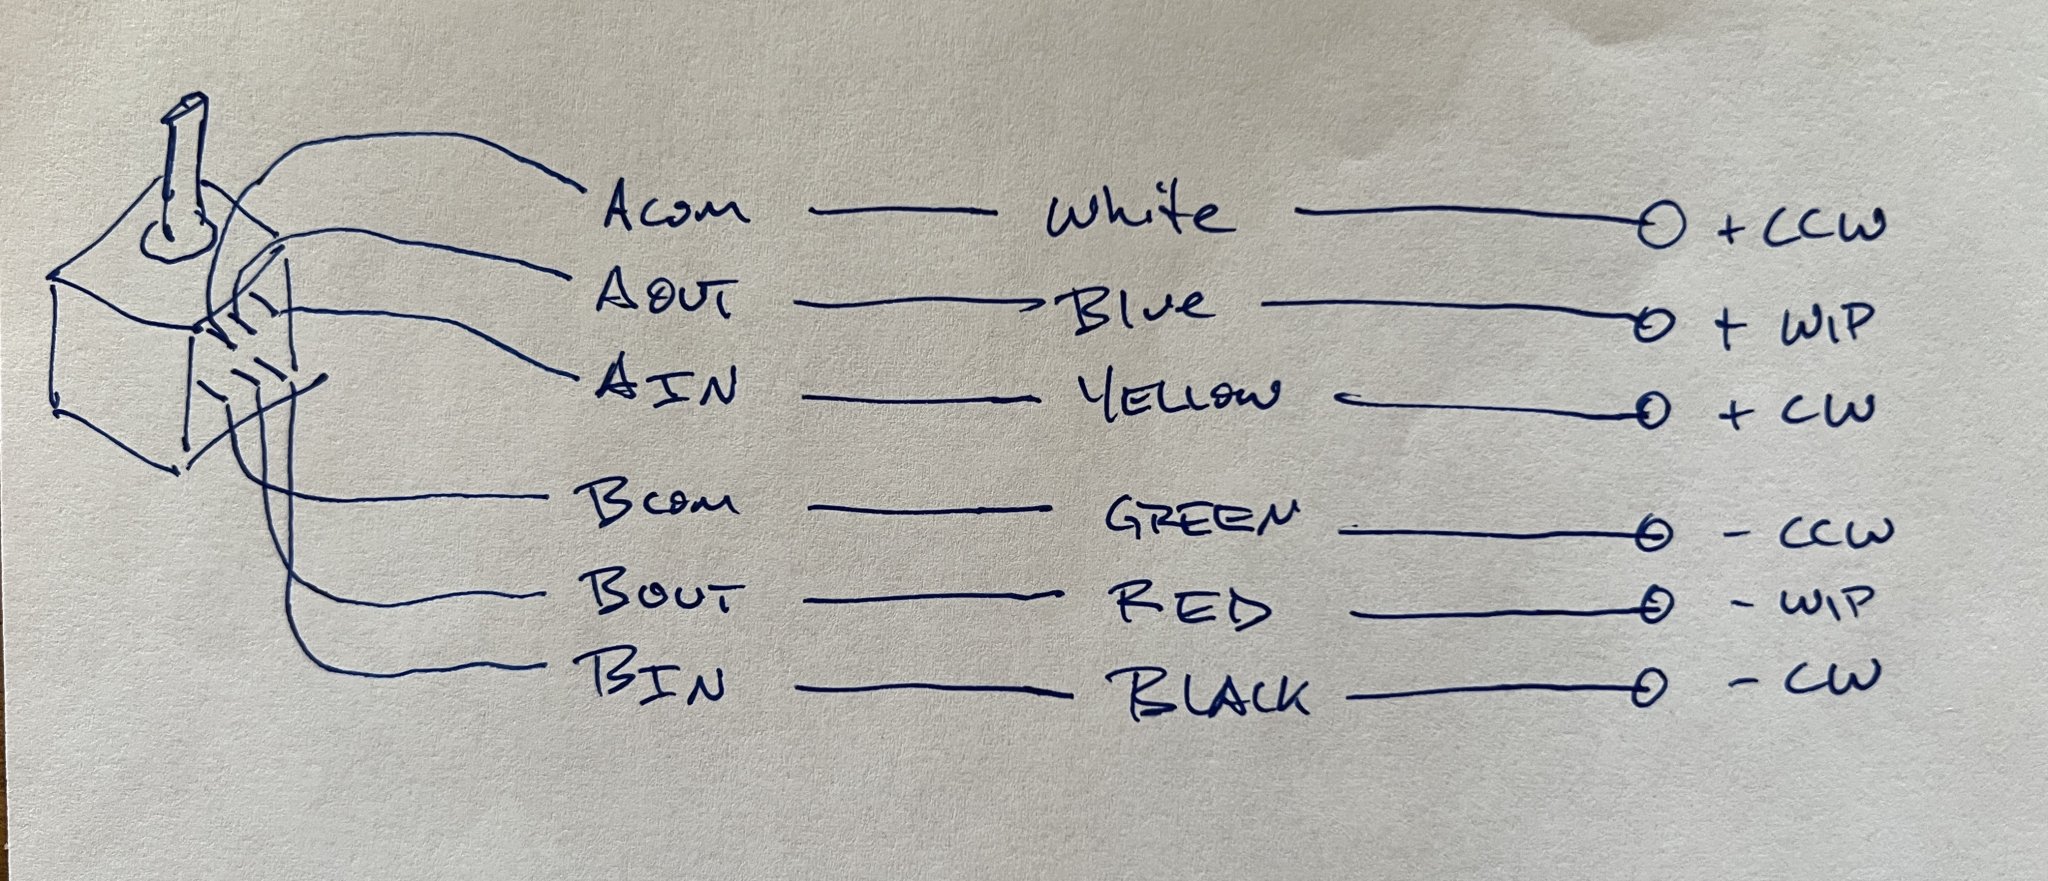 Acom White + CCW
AOUT Blue + WIP
AIN YELLOW + CW
Bcom GREEN - CCW
BOUT RED - WIP
BIN BLACK - CW